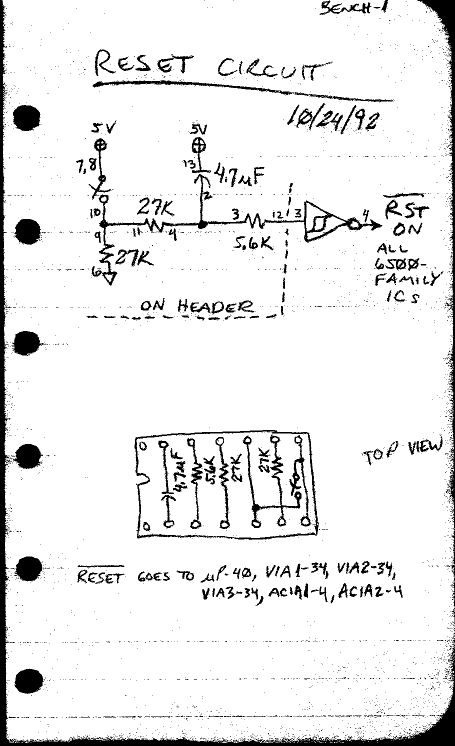 BENCH-1
RESET CIRCUIT
10/24/92
5V
5V
7,8
13
4.7µF
2
10
27K
9
11
4
3
12
3
4
5.6K
27K
6
RST
ON
ALL
6500-
FAMILY
ICs
ON HEADER
4.7µF
5.6K
27K
27K
TOP VIEW
RESET GOES TO µP-40, VIA1-34, VIA2-34,
VIA3-34, ACIA1-4, ACIA2-4